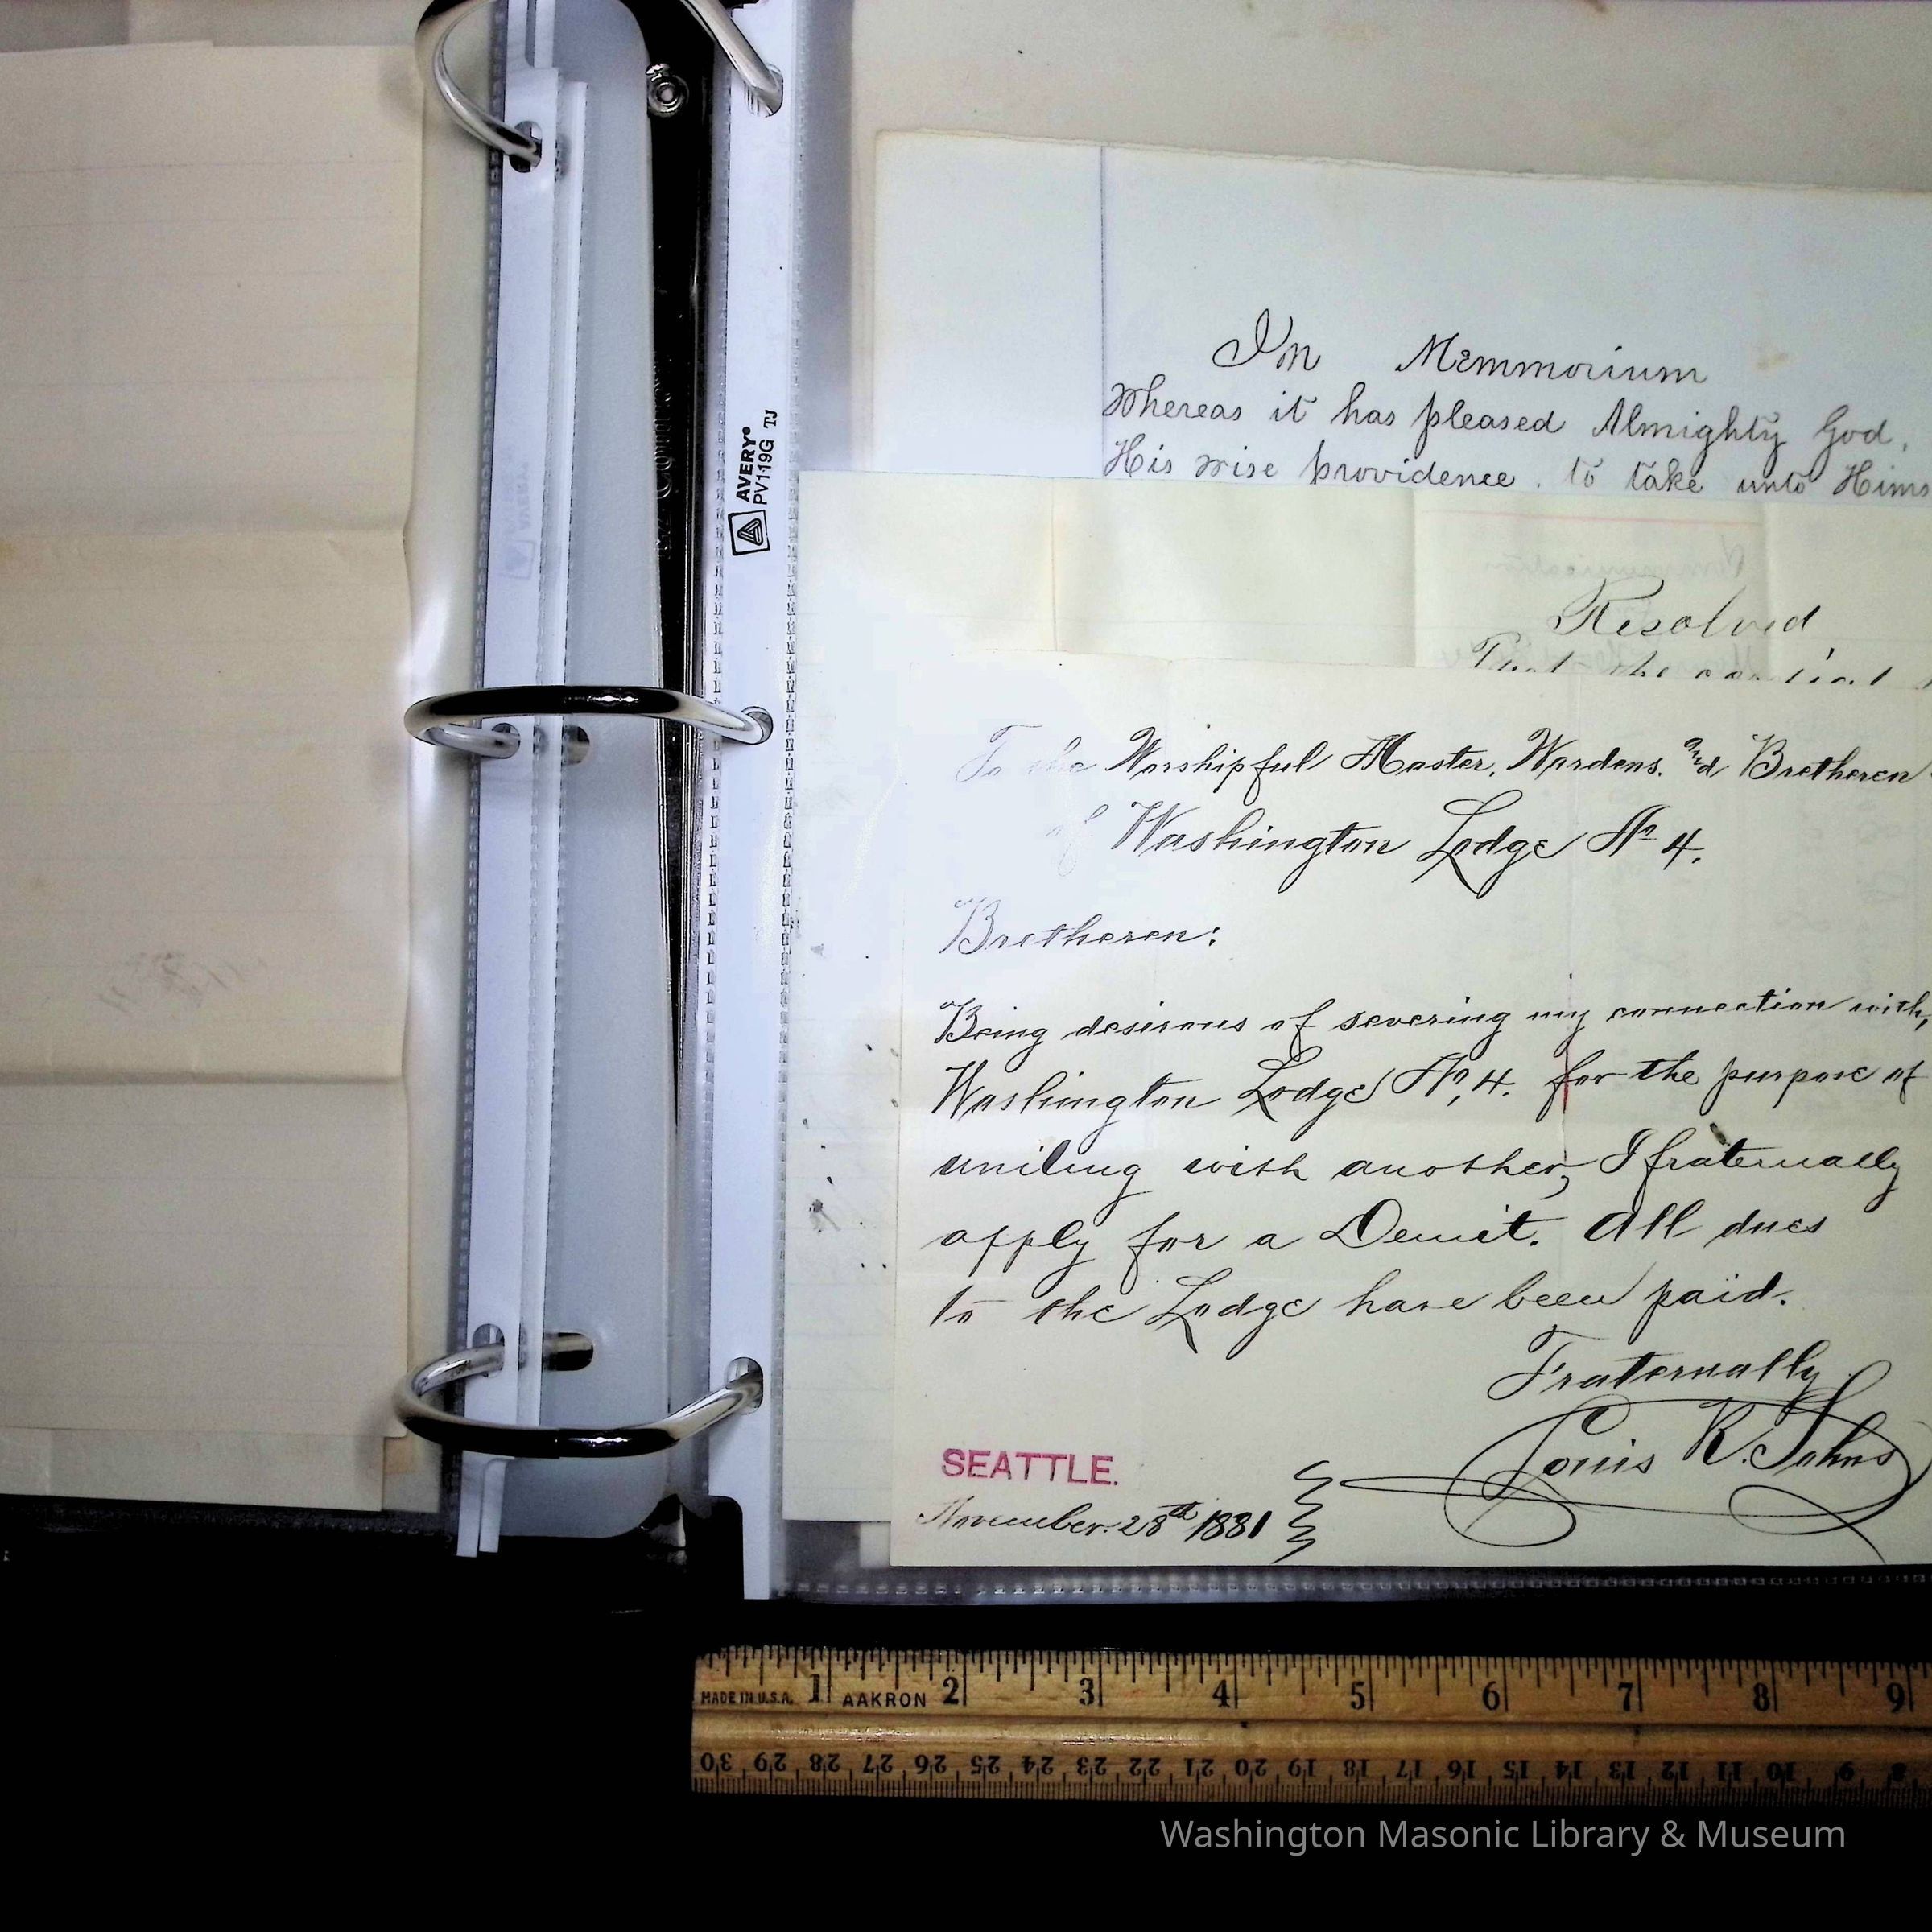 In Memmorium
Whereas it has pleased Almighty God,
His wise providence, to take unto Hims
Resolved
That the
To the Worshipful Master, Wardens, and Bretheren
of Washington Lodge No 4.
Bretheren:
Being desirous of severing my connection with,
Washington Lodge No, 4. for the purpose of
uniting with another, I fraternally
apply for a Demit. All dues
to the Lodge have been paid.
Fraternally
Louis K. Johns
SEATTLE.
November. 28th 1881
AVERY®
PV119G TJ
MADE IN U.S.A. 1 AAKRON 2 3 4 5 6 7 8 9
30 29 28 27 26 25 24 23 22 21 20 19 18 17 16 15 14 13 12 11 10 9 8
Washington Masonic Library & Museum